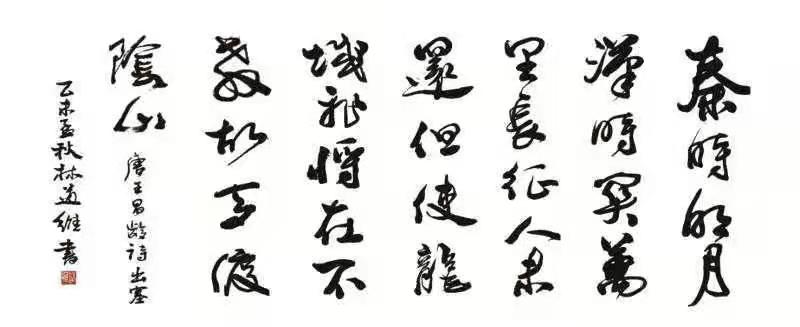 秦時明月
漢時關萬
里長征人未
還但使龍
城飛將在不
教胡馬渡
陰山
唐王昌齡詩出塞
乙未孟秋林道維書